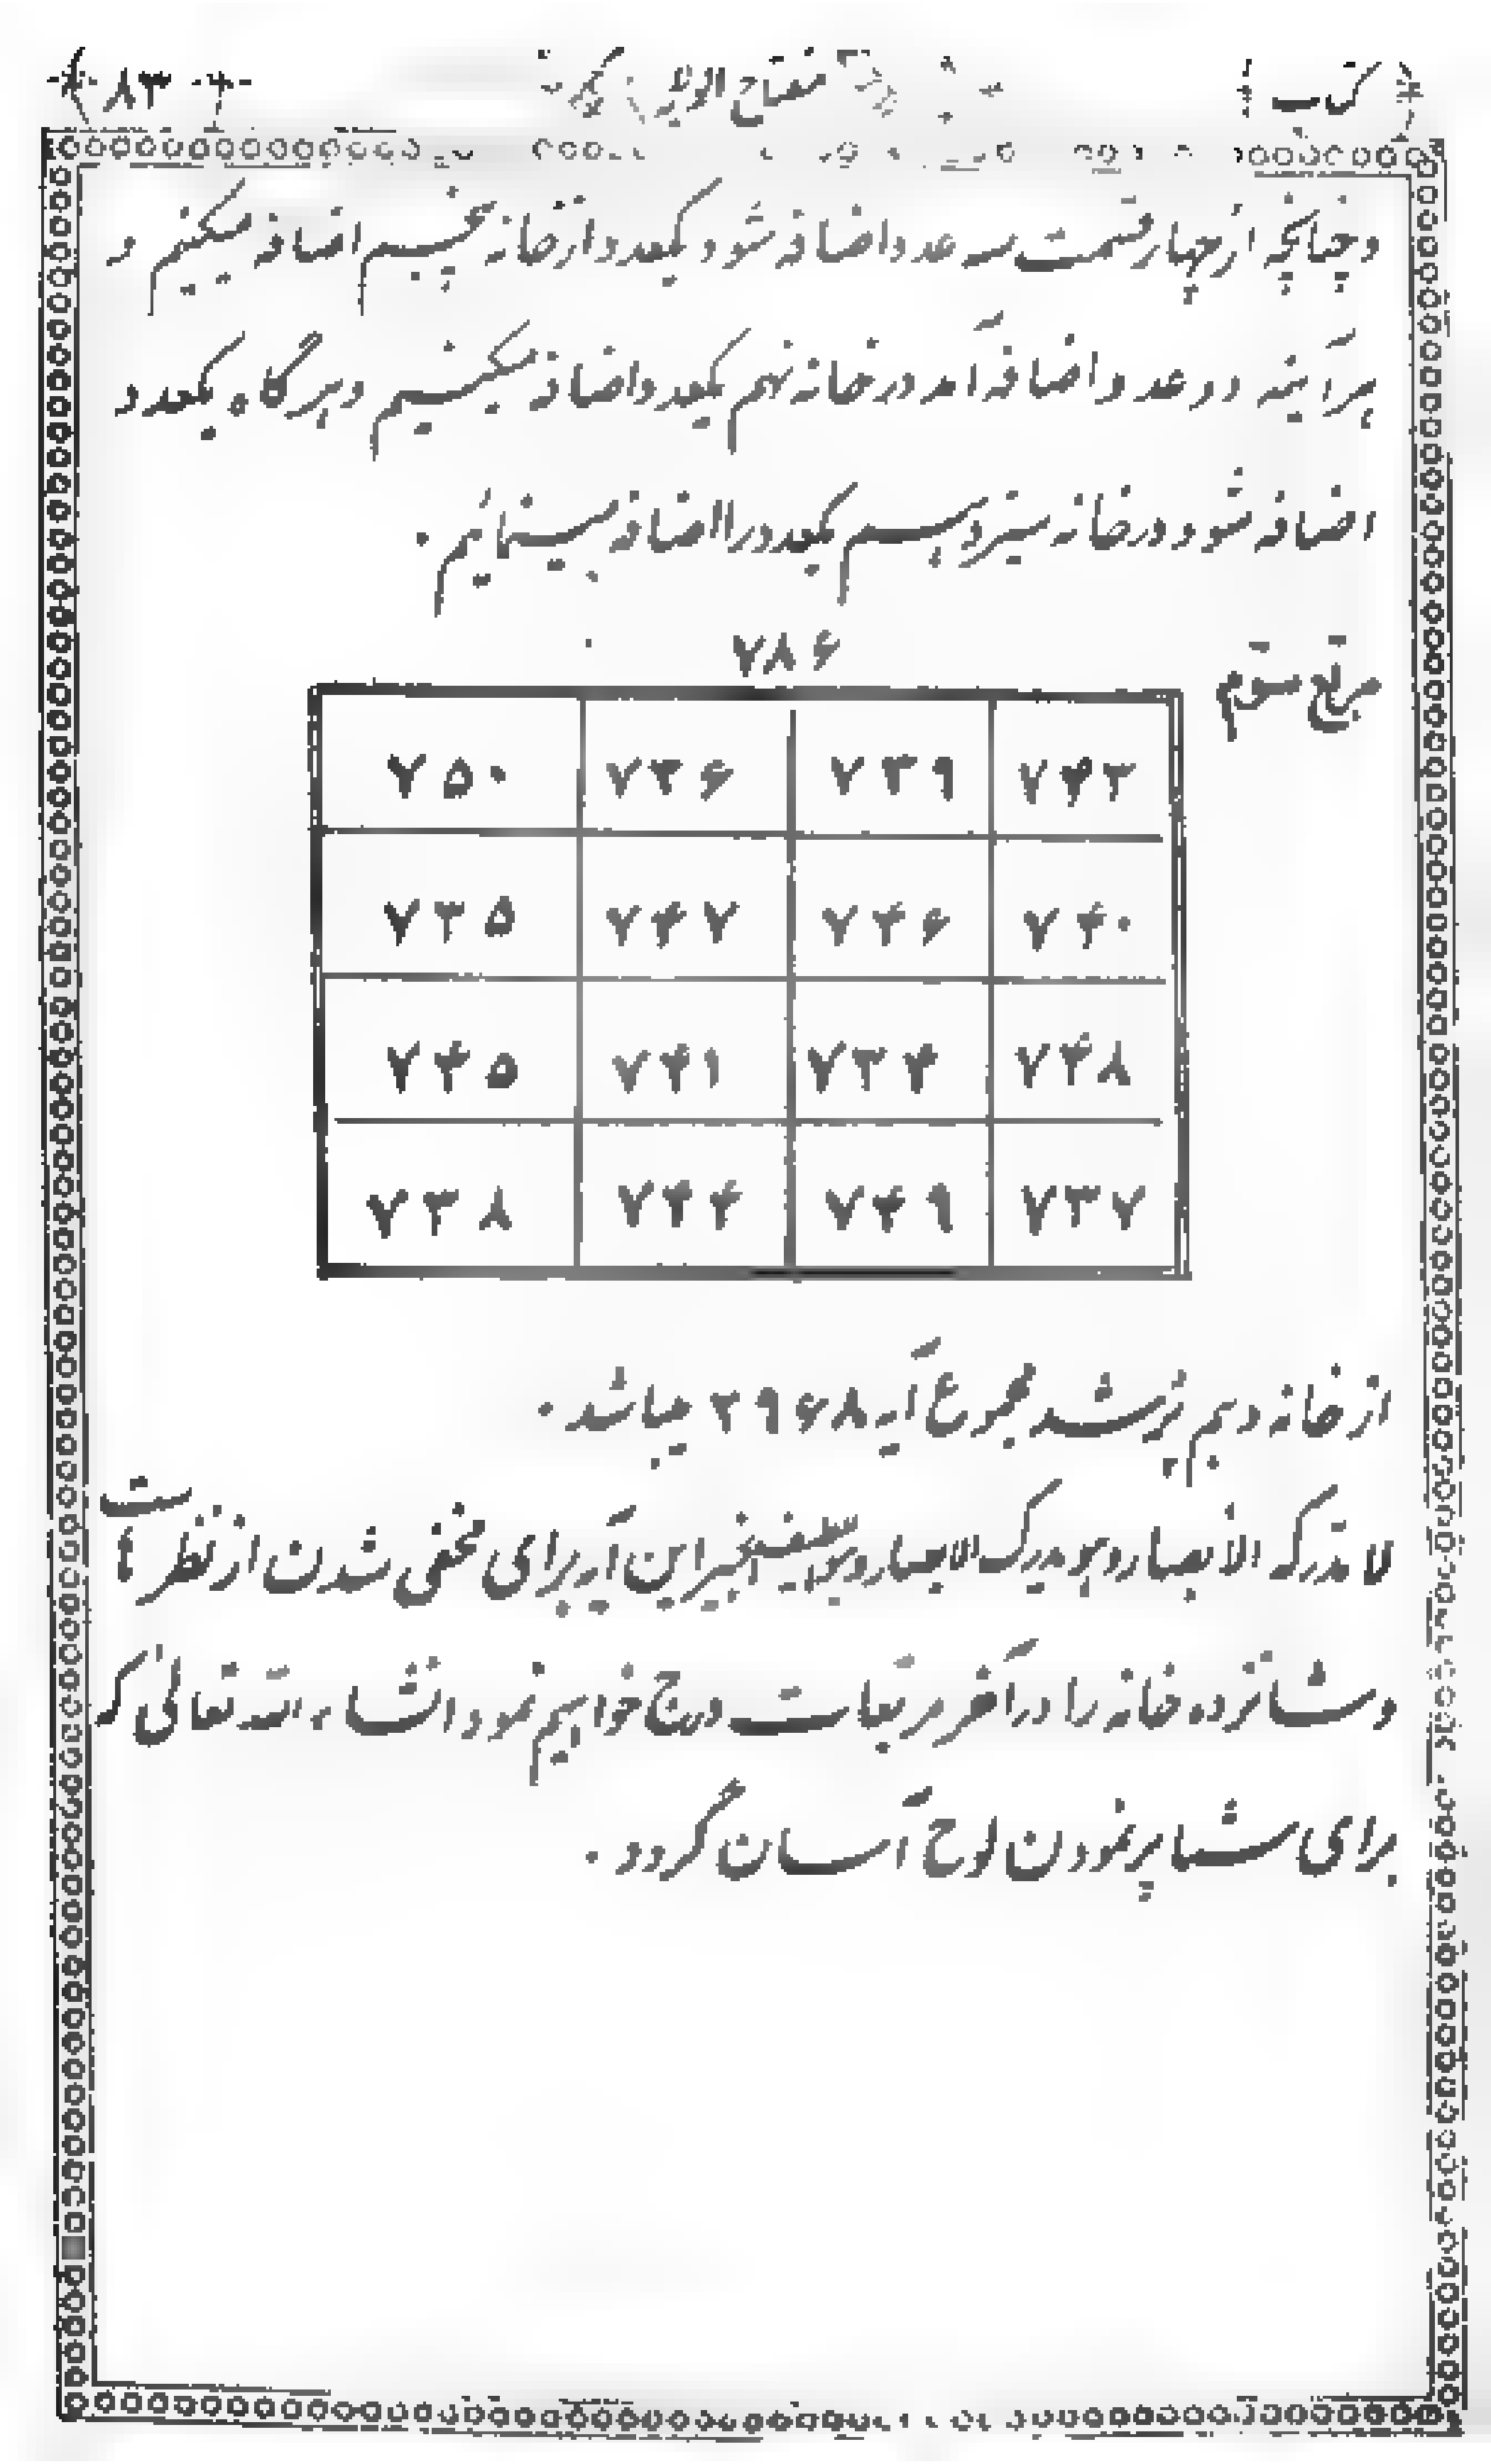 کتاب مفتاح ۸۳
و چنانچه از چهار قسمت سه عدد اضافه شود یکعدد از خانه پنجم اضافه میکنیم و
هرآینه دو عدد اضافه آمد در خانه نهم یکعدد اضافه میکنیم و هرگاه یکعدد
اضافه شود در خانه سیزدهم یکعدد را اضافه مینمائیم .
۷۸۶
مربع سوم
۷۵۰ ۷۳۶ ۷۳۹ ۷۴۳
۷۳۵ ۷۴۷ ۷۴۶ ۷۴۰
۷۴۵ ۷۴۱ ۷۳۴ ۷۴۸
۷۳۸ ۷۴۴ ۷۴۹ ۷۳۷
از خانه دهم پر شد مجموع آیه ۲۹۶۸ میباشد .
لا تدرکه الأبصار و هو یدرک الابصار و هو اللطیف الخبیر این آیه برای مخفی شدن از نظر هاست
و شانزده خانه را در آخر مربعات درج خواهیم نمود انشاء الله تعالی که
برای شما پر نمودن لوح آسان گردد .